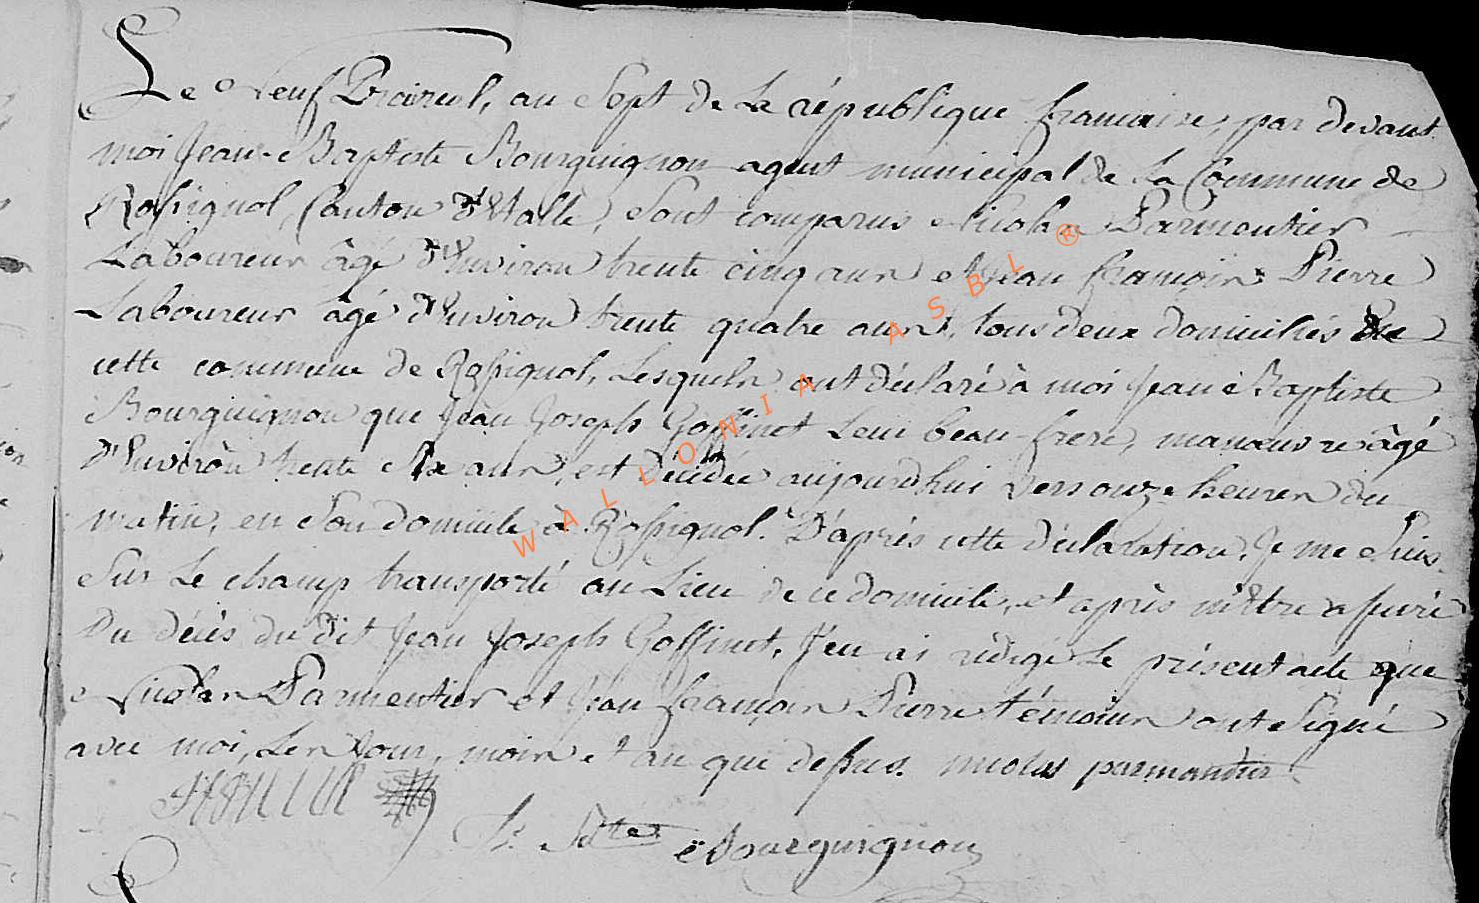 Le neuf Prairial, an sept de la république francaise, par devant
moi Jean-Baptiste Bourguignon agent municipal de la Commune de
Rossignol, Canton d'Etalle, sont comparus Nicolas Parmentier
Laboureur âgé d'Environ trente cinq ans et Jean françois Pierre
Laboureur âgé d'Environ trente quatre ans, tous deux domiciliés de
cette commune de Rossignol, Lesquels ont déclaré à moi Jean Baptiste
Bourguignon que Jean Joseph Goffinet Leur beau-frere, manœuvre âgé
d'Environ trente six ans, est décédé aujourd'hui vers onze heures du
matin, en son domicile à Rossignol. D'après cette déclaration, Je me suis
sur le champ transporté au Lieu de ce domicile, et après m'être assuré
du décès du dit Jean Joseph Goffinet, J'en ai rédigé Le présent acte que
Nicolas Parmentier et Jean françois Pierre témoins ont signé
avec moi, Les Jour, mois et an que dessus. nicolas parmantier
J. Bte Bourguignon
WALLONIA ASBL ®